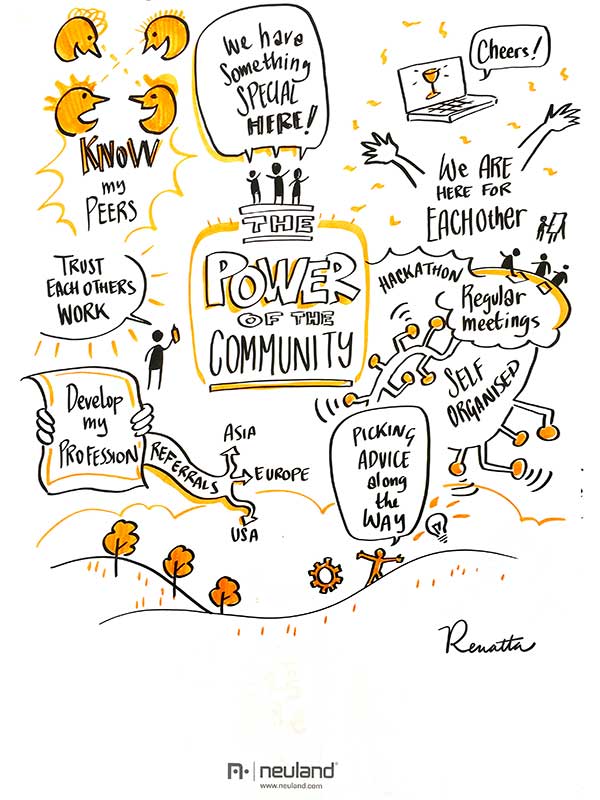 We have
Something
SPECIAL
HERE!
Cheers!
KNOW
my
PEERS
WE ARE
HERE FOR
EACHOther
THE
POWER
OF THE
COMMUNITY
TRUST
EACH OTHERS
WORK
HACKATHON
Regular
meetings
SELF
ORGANISED
Develop
my
PROFESSION
REFERRALS
ASIA
EUROPE
USA
PICKING
ADVICE
along
the
WAY
Renatta
neuland®
www.neuland.com